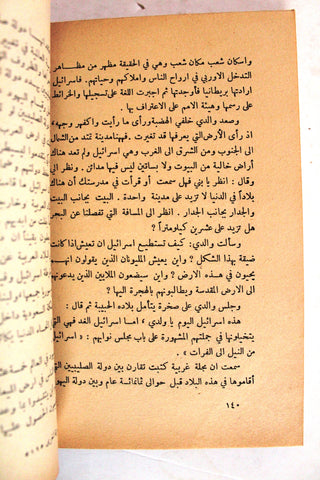 واسكان شعب مكان شعب وهي في الحقيقة مظهر من مظاهر
التدخل الاوربي في ارواح الناس واملاكهم وحياتهم. فاسرائيل
ارادتها بريطانيا فأوجدتها ثم اجبرت اللغة على تسجيلها والخرائط
على رسمها وهيئة الامم على الاعتراف بها.
وصعد والدي خلفي الهضبة ورأى ما رأيت واكفهر وجهه
اذ رأى الأرض التي يعرفها قد تغيرت. فهنا مدينة تمتد من الشمال
الى الجنوب ومن الشرق الى الغرب وهي اسرائيل ولم تعد هناك
أراض خالية من البيوت ولا بساتين ليس فيها مداخن. ونظر الي
وقال: انظر يا بني فهل سمعت أو قرأت في مدرستك أن هناك
بلاداً في الدنيا لا تزيد على مدينة واحدة. البيت بجانب البيت
والجدار بجانب الجدار. انظر الى المسافة التي تفصلنا عن البحر
هل تزيد على عشرين كيلومتراً؟
وسألت والدي: كيف تستطيع اسرائيل ان تعيش اذا كانت
ضيقة بهذا الشكل؟ واين يعيش المليونان الذين يقولون انهم
يحيون في هذه الارض؟ واين سيضعون الملايين الذين يدعونهم
الى الارض المقدسة ويطالبونهم بالهجرة اليها؟
وجلس والدي على صخرة يتأمل بلاده الحبيبة ثم قال:
هذه اسرائيل اليوم يا ولدي «اما اسرائيل الغد فهي التي
يتخيلونها في جملتهم المشهورة على باب مجلس نوابهم: «اسرائيل
من النيل الى الفرات».
سمعت ان مجلة غربية كتبت تقارن بين دولة الصليبيين التي
أقاموها في هذه البلاد قبل حوالى ثمانمائة عام وبين دولة اليهود
١٤٠